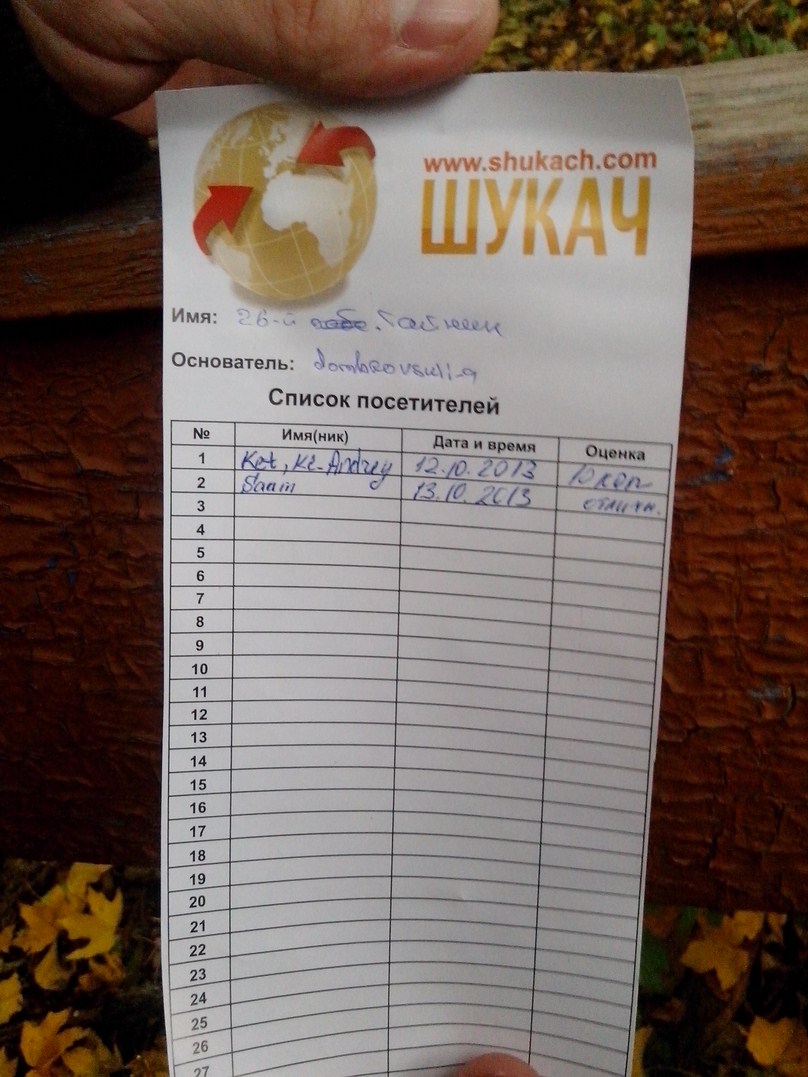 www.shukach.com
ШУКАЧ
Имя: 26-й
Основатель: dombrovskii-a
Список посетителей
№ Имя(ник) Дата и время Оценка
1 Ket, Kt-Andrey 12.10.2013 10 коп
2 Saam 13.10.2013 отличн.
3
4
5
6
7
8
9
10
11
12
13
14
15
16
17
18
19
20
21
22
23
24
25
26
27